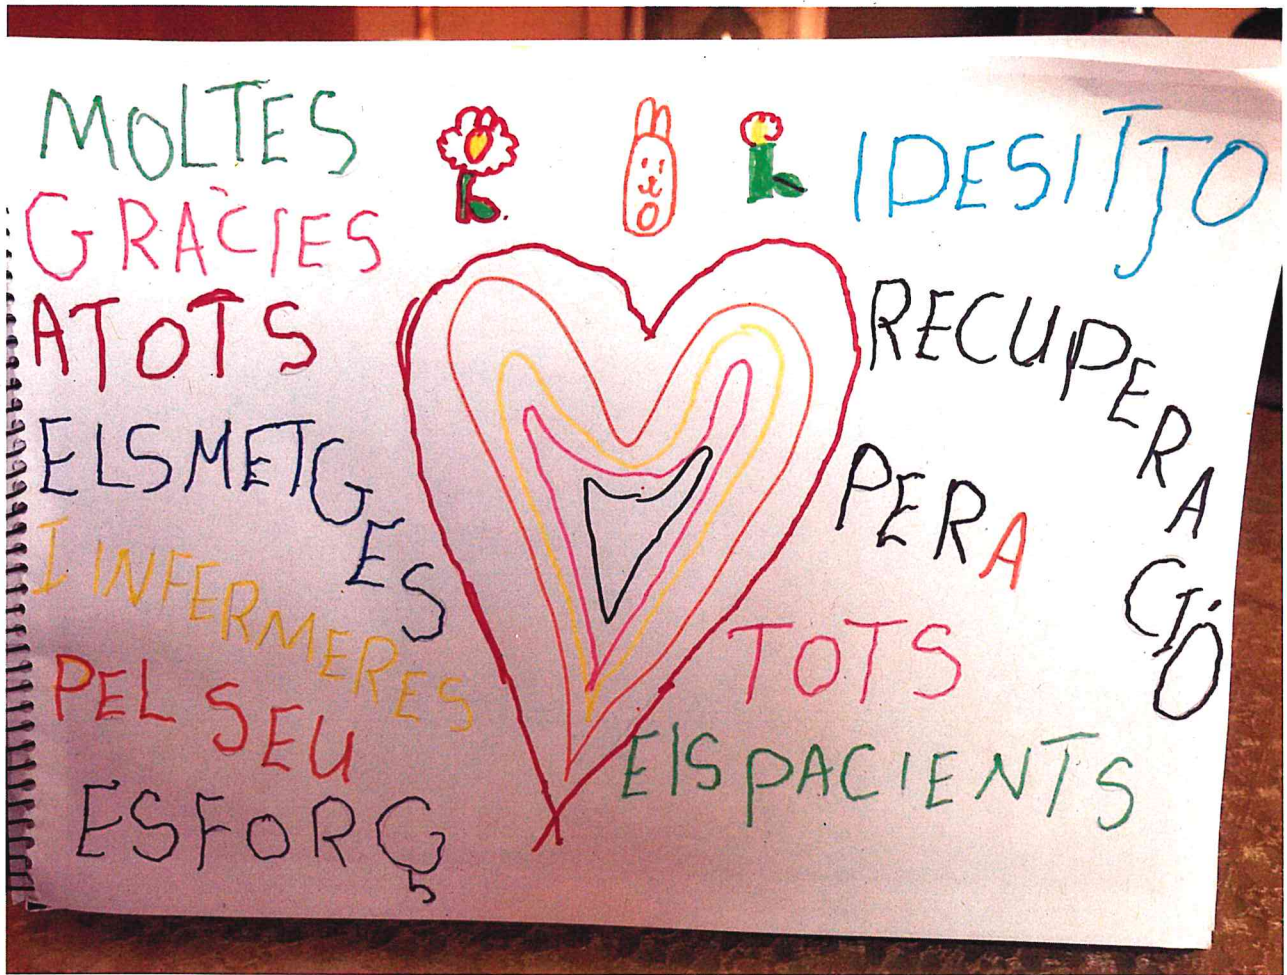 MOLTES
GRÀCIES
A TOTS
ELS METGES
I INFERMERES
PEL SEU
ESFORÇ
I DESITJO
RECUPERACIÓ
PER A
TOTS
ElS PACIENTS